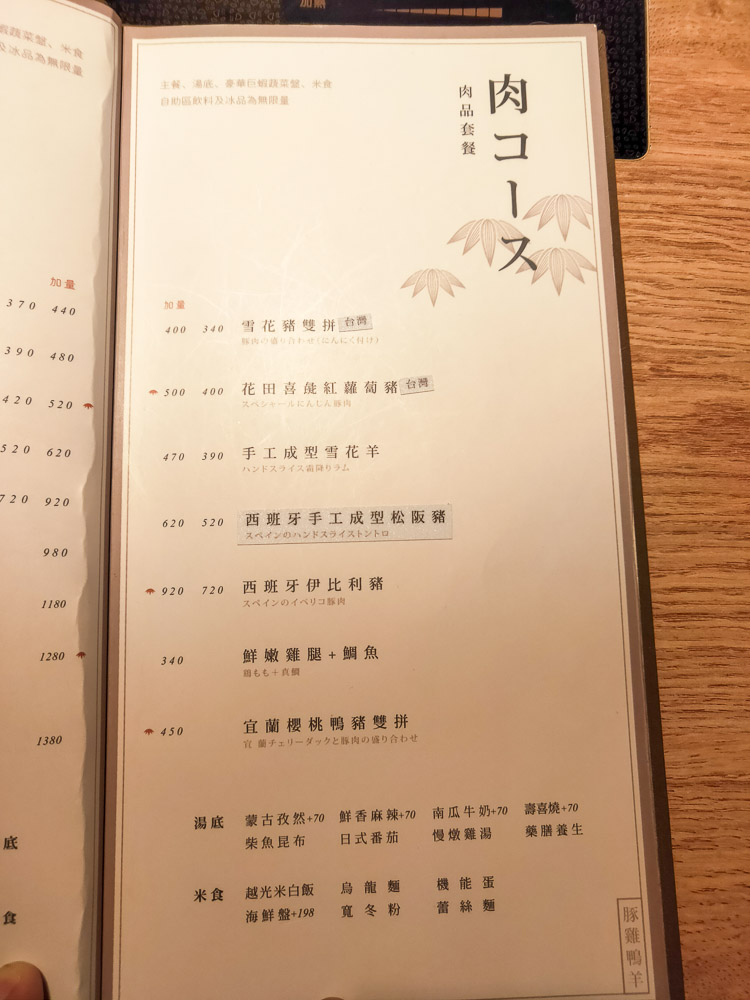 加熱
蝦蔬菜盤、米食
及冰品為無限量
加量
370 440
390 480
420 520
520 620
720 920
980
1180
1280
1380
底
食
肉コース
肉品套餐
主餐、湯底、豪華巨蝦蔬菜盤、米食
自助區飲料及冰品為無限量
加量
400 340 雪花豬雙拼 台灣
豚肉の盛り合わせ(にんにく付け)
500 400 花田喜彘紅蘿蔔豬 台灣
スペシャールにんじん豚肉
470 390 手工成型雪花羊
ハンドスライス霜降りラム
620 520 西班牙手工成型松阪豬
スペインのハンドスライストントロ
920 720 西班牙伊比利豬
スペインのイベリコ豚肉
340 鮮嫩雞腿+鯛魚
鶏もも+真鯛
450 宜蘭櫻桃鴨豬雙拼
宜蘭チェリーダックと豚肉の盛り合わせ
湯底 蒙古孜然+70 鮮香麻辣+70 南瓜牛奶+70 壽喜燒+70
柴魚昆布 日式番茄 慢燉雞湯 藥膳養生
米食 越光米白飯 烏龍麵 機能蛋
海鮮盤+198 寬冬粉 蕾絲麵
豚雞鴨羊